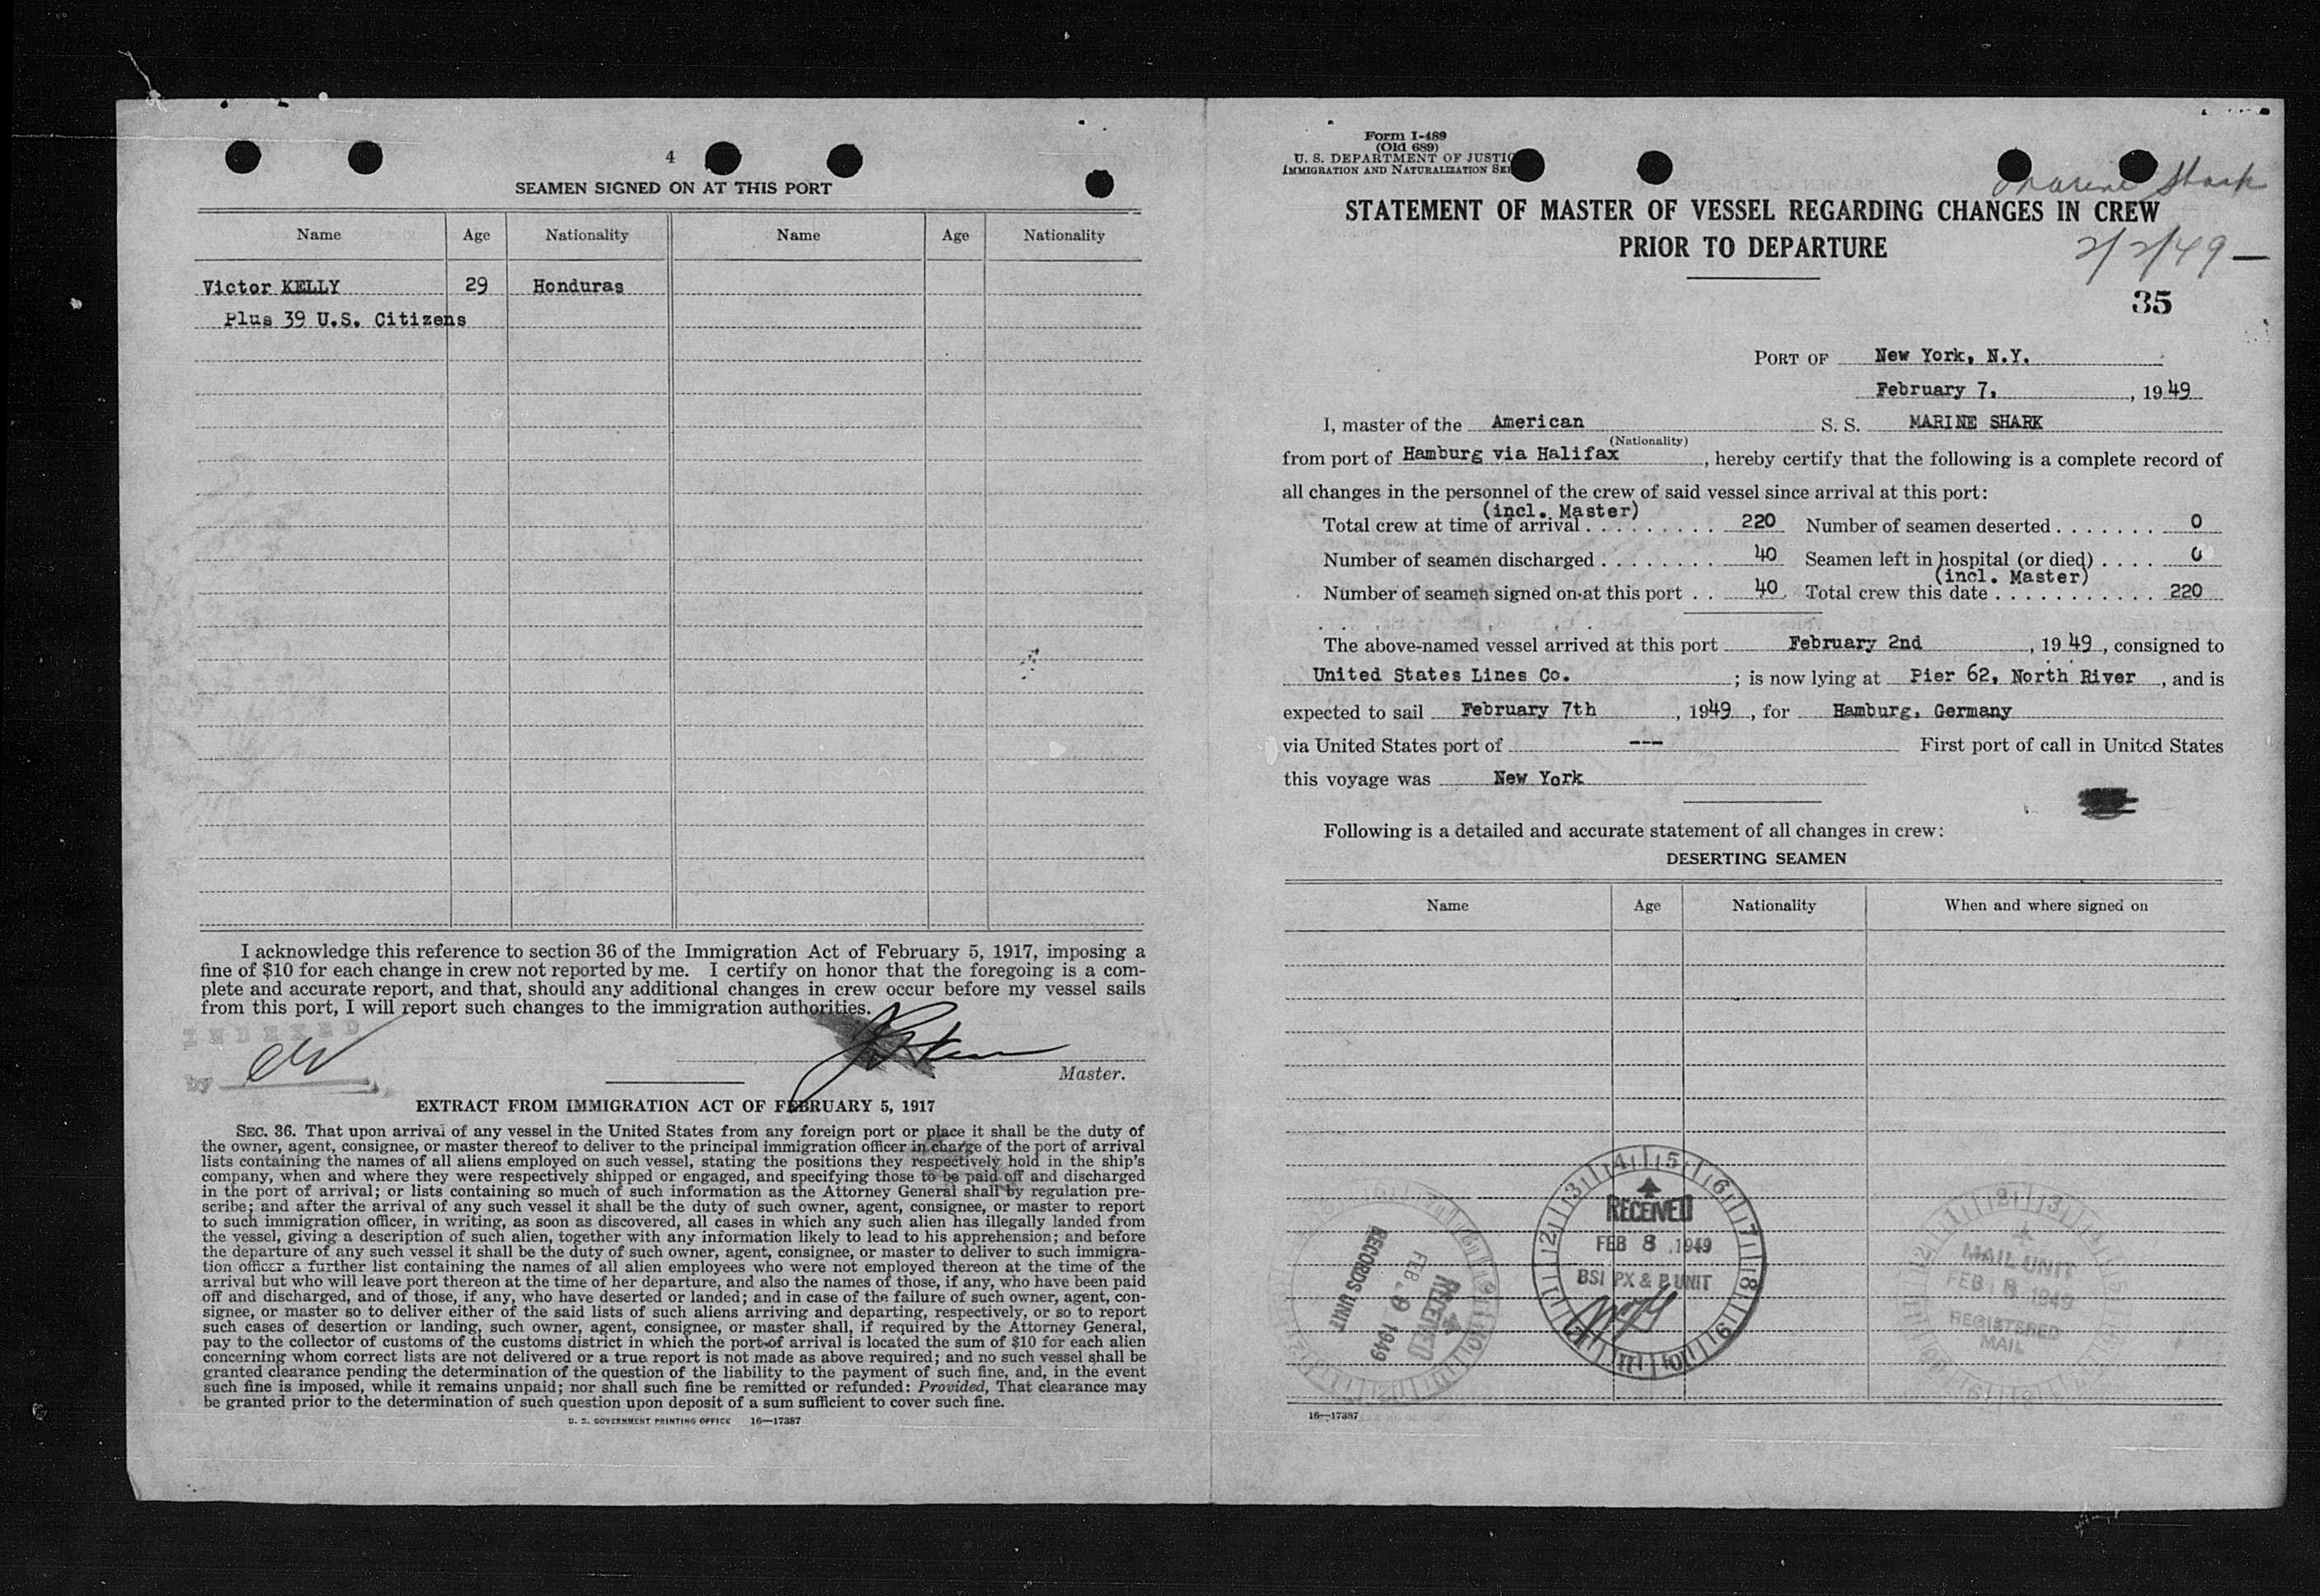 4
SEAMEN SIGNED ON AT THIS PORT
Name Age Nationality Name Age Nationality
Victor KELLY 29 Honduras
Plus 39 U.S. Citizens
I acknowledge this reference to section 36 of the Immigration Act of February 5, 1917, imposing a
fine of $10 for each change in crew not reported by me. I certify on honor that the foregoing is a com-
plete and accurate report, and that, should any additional changes in crew occur before my vessel sails
from this port, I will report such changes to the immigration authorities.
INDEXED
by
Master.
EXTRACT FROM IMMIGRATION ACT OF FEBRUARY 5, 1917
SEC. 36. That upon arrival of any vessel in the United States from any foreign port or place it shall be the duty of
the owner, agent, consignee, or master thereof to deliver to the principal immigration officer in charge of the port of arrival
lists containing the names of all aliens employed on such vessel, stating the positions they respectively hold in the ship's
company, when and where they were respectively shipped or engaged, and specifying those to be paid off and discharged
in the port of arrival; or lists containing so much of such information as the Attorney General shall by regulation pre-
scribe; and after the arrival of any such vessel it shall be the duty of such owner, agent, consignee, or master to report
to such immigration officer, in writing, as soon as discovered, all cases in which any such alien has illegally landed from
the vessel, giving a description of such alien, together with any information likely to lead to his apprehension; and before
the departure of any such vessel it shall be the duty of such owner, agent, consignee, or master to deliver to such immigra-
tion officer a further list containing the names of all alien employees who were not employed thereon at the time of the
arrival but who will leave port thereon at the time of her departure, and also the names of those, if any, who have been paid
off and discharged, and of those, if any, who have deserted or landed; and in case of the failure of such owner, agent, con-
signee, or master so to deliver either of the said lists of such aliens arriving and departing, respectively, or so to report
such cases of desertion or landing, such owner, agent, consignee, or master shall, if required by the Attorney General,
pay to the collector of customs of the customs district in which the port of arrival is located the sum of $10 for each alien
concerning whom correct lists are not delivered or a true report is not made as above required; and no such vessel shall be
granted clearance pending the determination of the question of the liability to the payment of such fine, and, in the event
such fine is imposed, while it remains unpaid; nor shall such fine be remitted or refunded: Provided, That clearance may
be granted prior to the determination of such question upon deposit of a sum sufficient to cover such fine.
U. S. GOVERNMENT PRINTING OFFICE 16—17387
Form I-489
(Old 689)
U. S. DEPARTMENT OF JUSTIC
IMMIGRATION AND NATURALIZATION SER
Marine Shark
STATEMENT OF MASTER OF VESSEL REGARDING CHANGES IN CREW
PRIOR TO DEPARTURE
2/2/49 —
35
PORT OF New York, N.Y.
February 7, , 1949
I, master of the American S. S. MARINE SHARK
(Nationality)
from port of Hamburg via Halifax , hereby certify that the following is a complete record of
all changes in the personnel of the crew of said vessel since arrival at this port:
(incl. Master)
Total crew at time of arrival . . . . . . . . . 220 Number of seamen deserted . . . . . . . 0
Number of seamen discharged . . . . . . . . 40 Seamen left in hospital (or died) . . . . 0
(incl. Master)
Number of seamen signed on at this port . . 40 Total crew this date . . . . . . . . . . . 220
The above-named vessel arrived at this port February 2nd , 1949 , consigned to
United States Lines Co. ; is now lying at Pier 62, North River , and is
expected to sail February 7th , 1949 , for Hamburg, Germany
via United States port of --- First port of call in United States
this voyage was New York
Following is a detailed and accurate statement of all changes in crew:
DESERTING SEAMEN
Name Age Nationality When and where signed on
RECEIVED
FEB 9 1949
RECORDS UNIT
4 5 6 7 8 9 10 11 12 1 2 3
RECEIVED
FEB 8 1949
BSI PX & P UNIT
MAIL UNIT
FEB 8 1949
REGISTERED
MAIL
16—17387